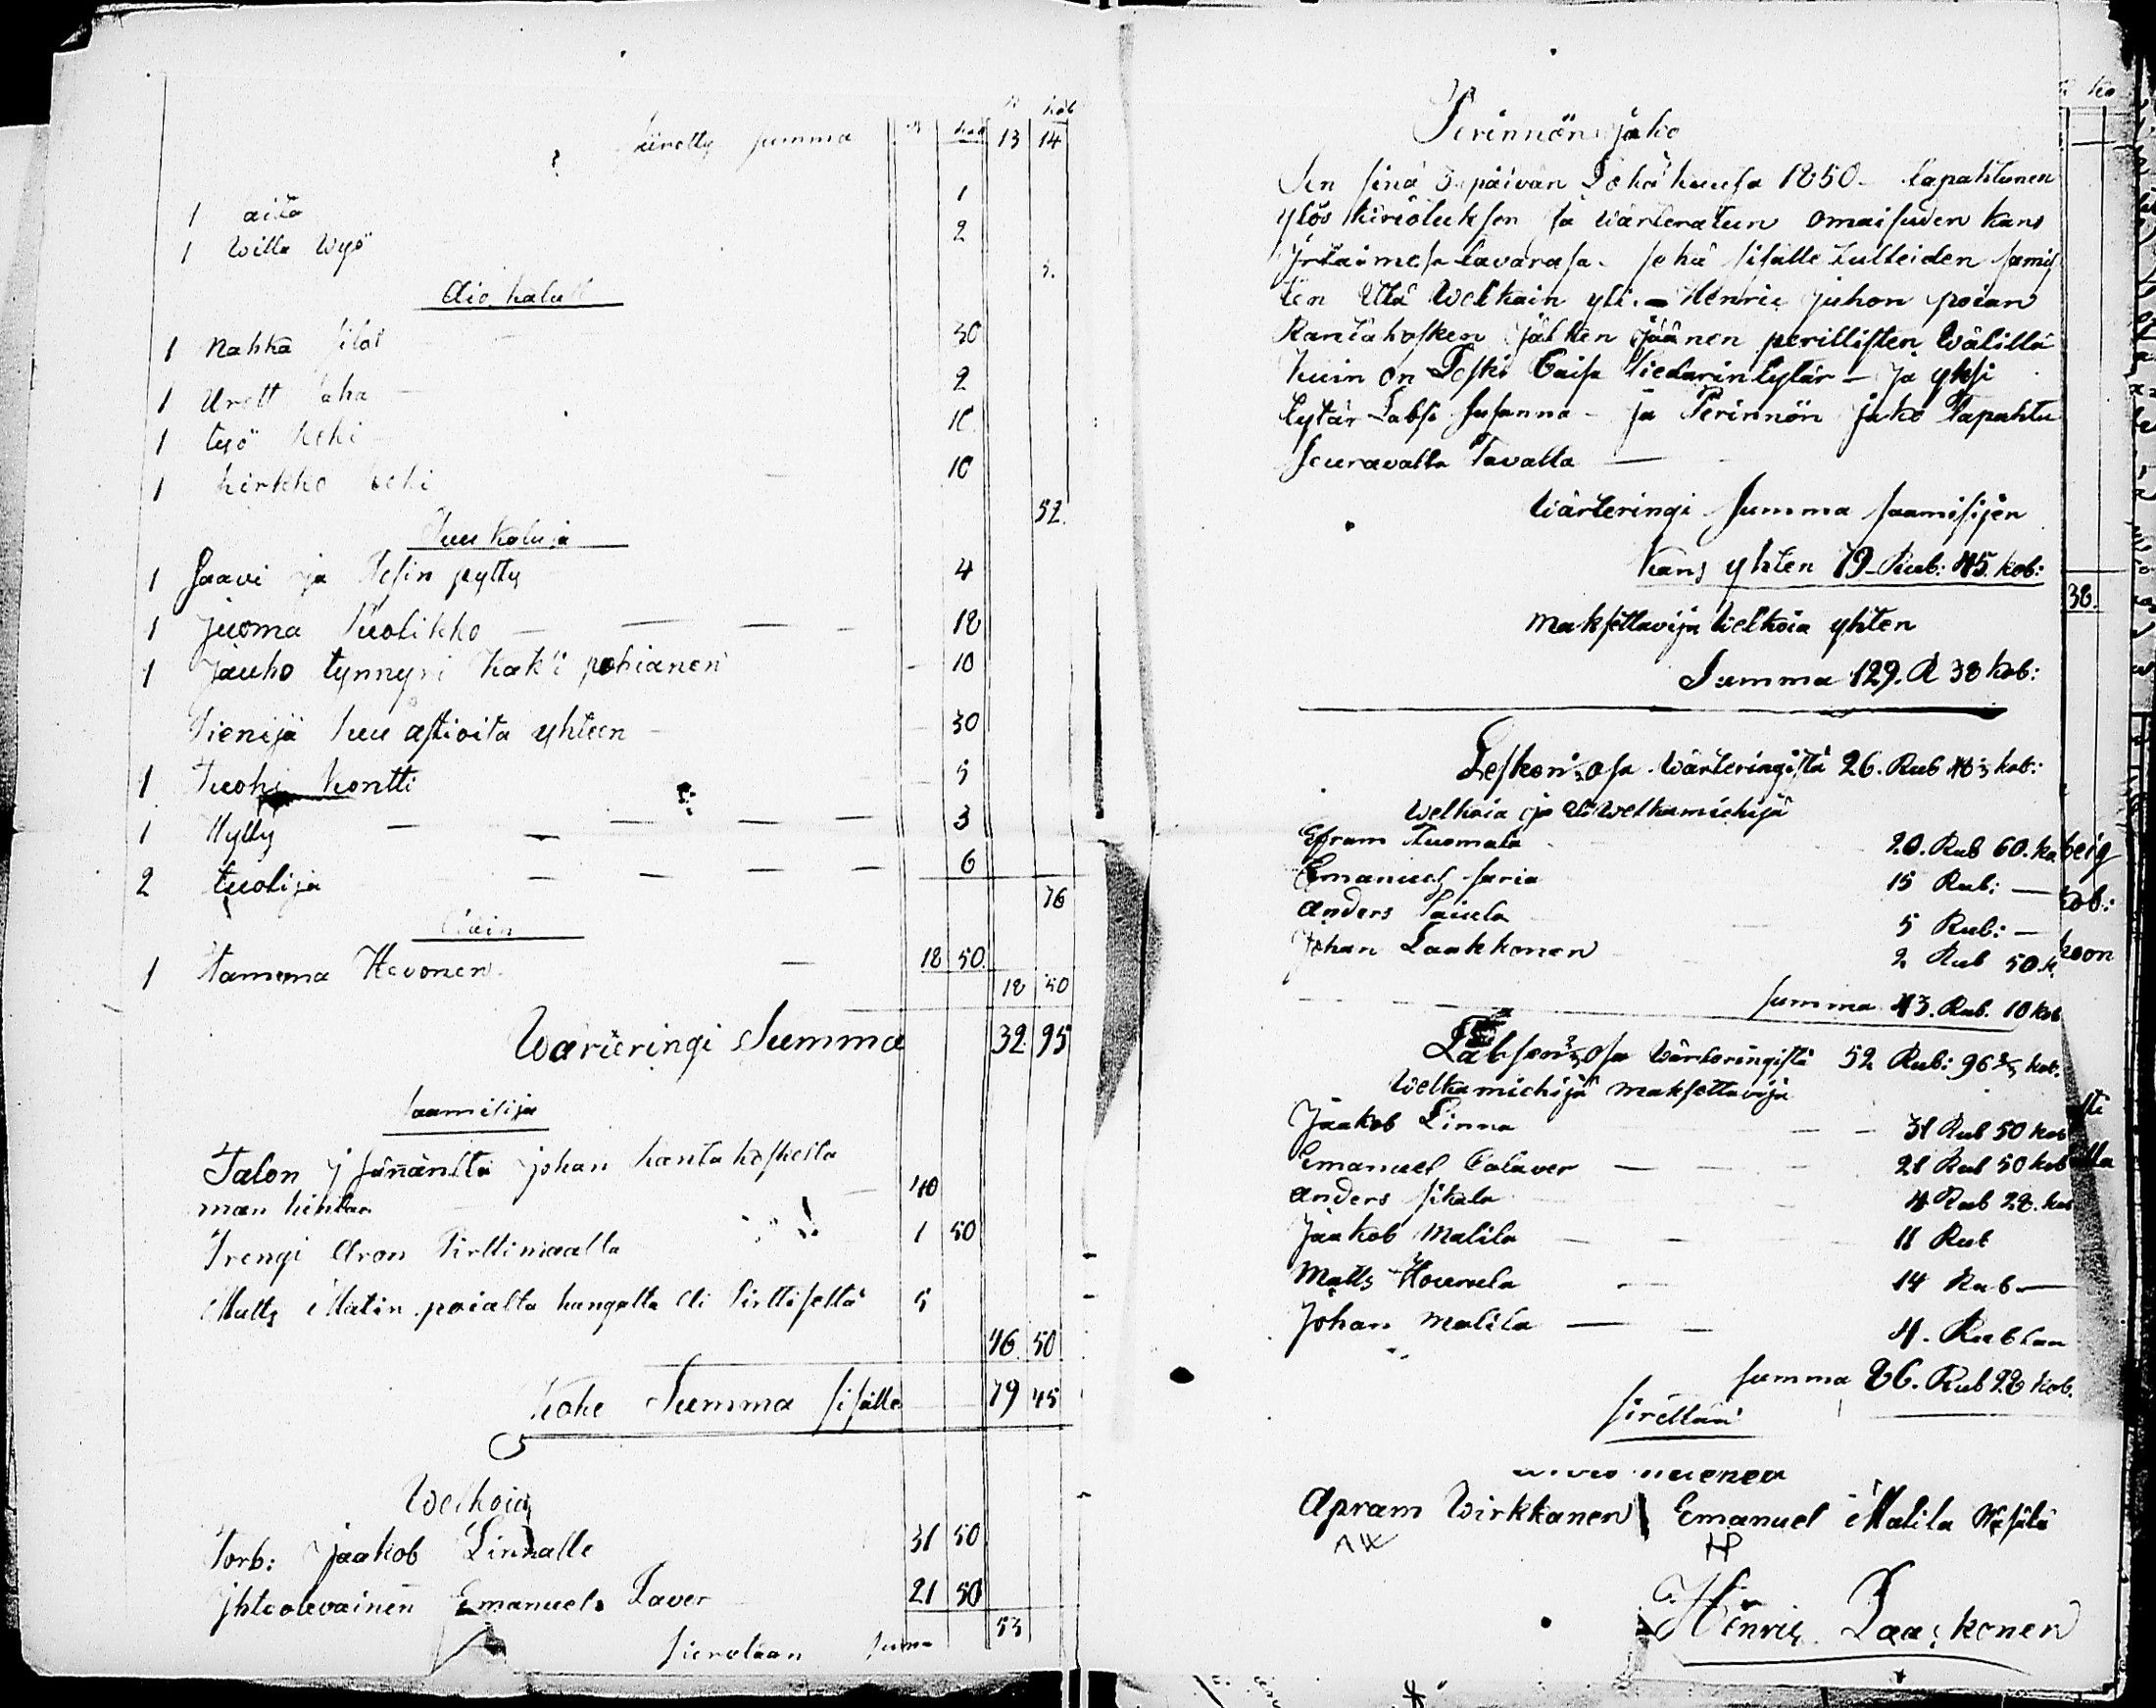 R kob
siiretty summa R kob 13 14
1 aita 1
1 Willa Wyö 2
3.
Aio kalut
1 Nahka silat 30
1 Urett laha 2
1 työ reki 10
1 kirkko reki 10
52.
Puu kaluja
1 Saavi ja Pesin pytty 4
1 Juoma Puolikko 18
1 Jauho tynnyri kak'i pohianen 10
Pienijä Puu astioita yhteen 30
1 Tuohi kontti 5
1 Hylly 3
2 tuolija 6
76
Eläin
1 Tamma Hevonen 18 50.
18 50
Wärteringi Summa 32. 95
Saamisija
Talon Jsännältä Johan Rantakoskella
man hinlan 40
Trengi Aron Pirttimaalta 1 50
Matts Matin poialta kangalta eli Pirttiseltä 5
46. 50
Koko Summa sisälle 79 45
Welkoia
Torb: Jaakob Linnalle 31 50
Jhteolevainen Emanuel Laver 21 50
53
siiretään suma
Perinnön jako
Sen sinä 3 päivan Lokakuusa 1850 tapahtunen
ylös kirioituksen ja wärteratun omaisuden kans
Jrtaimesa tavarasa. sekä sisälle tulleiden samis
ten Ulla Welkain yli. Henric Juhon poian
Rantakosken jälken Jäänen perillisten wälillä
kuin on Leski Caisa Pietarintytär - ja yksi
tytär Labsi Susanna - ja Perinnön jako Tapahtu
seuravalla Tavalla
Wärteringi Summa saamisijen
kans yhten 79 Rub: 45. kob:
38.
maksettavija Welkoia yhten
Summa 129. R 38 kob:
Lesken osa Wärteringistä 26. Rub 48⅓ kob:
Welkoia ja Welkamiehijä
Efram Tuomala 20. Rub 60. ko
Emanuel Saria 15 Rub: —
Anders Paiula 5 Rub: —
Johan Laakkonen 2 Rub 50 k.
Summa 43. Rub. 10 kob
Labsen ⅔ osa Wärteringistä 52 Rub: 96⅔ kob:
Welkamiehijä maksettavija
Jaakob Linna 31 Rub 50 kob
Emanuel Calaver 21 Rub 50 kob
Anders Sikala 4 Rub 28. kob
Jaakob Malila 11 Rub
Matts Houvula 14 Rub —
Johan Malila 4. Rublan
Summa 86. Rub 28 kob.
siretään
Apram Wirkkanen Emanuel Malila
AW
Henric Laaskonen